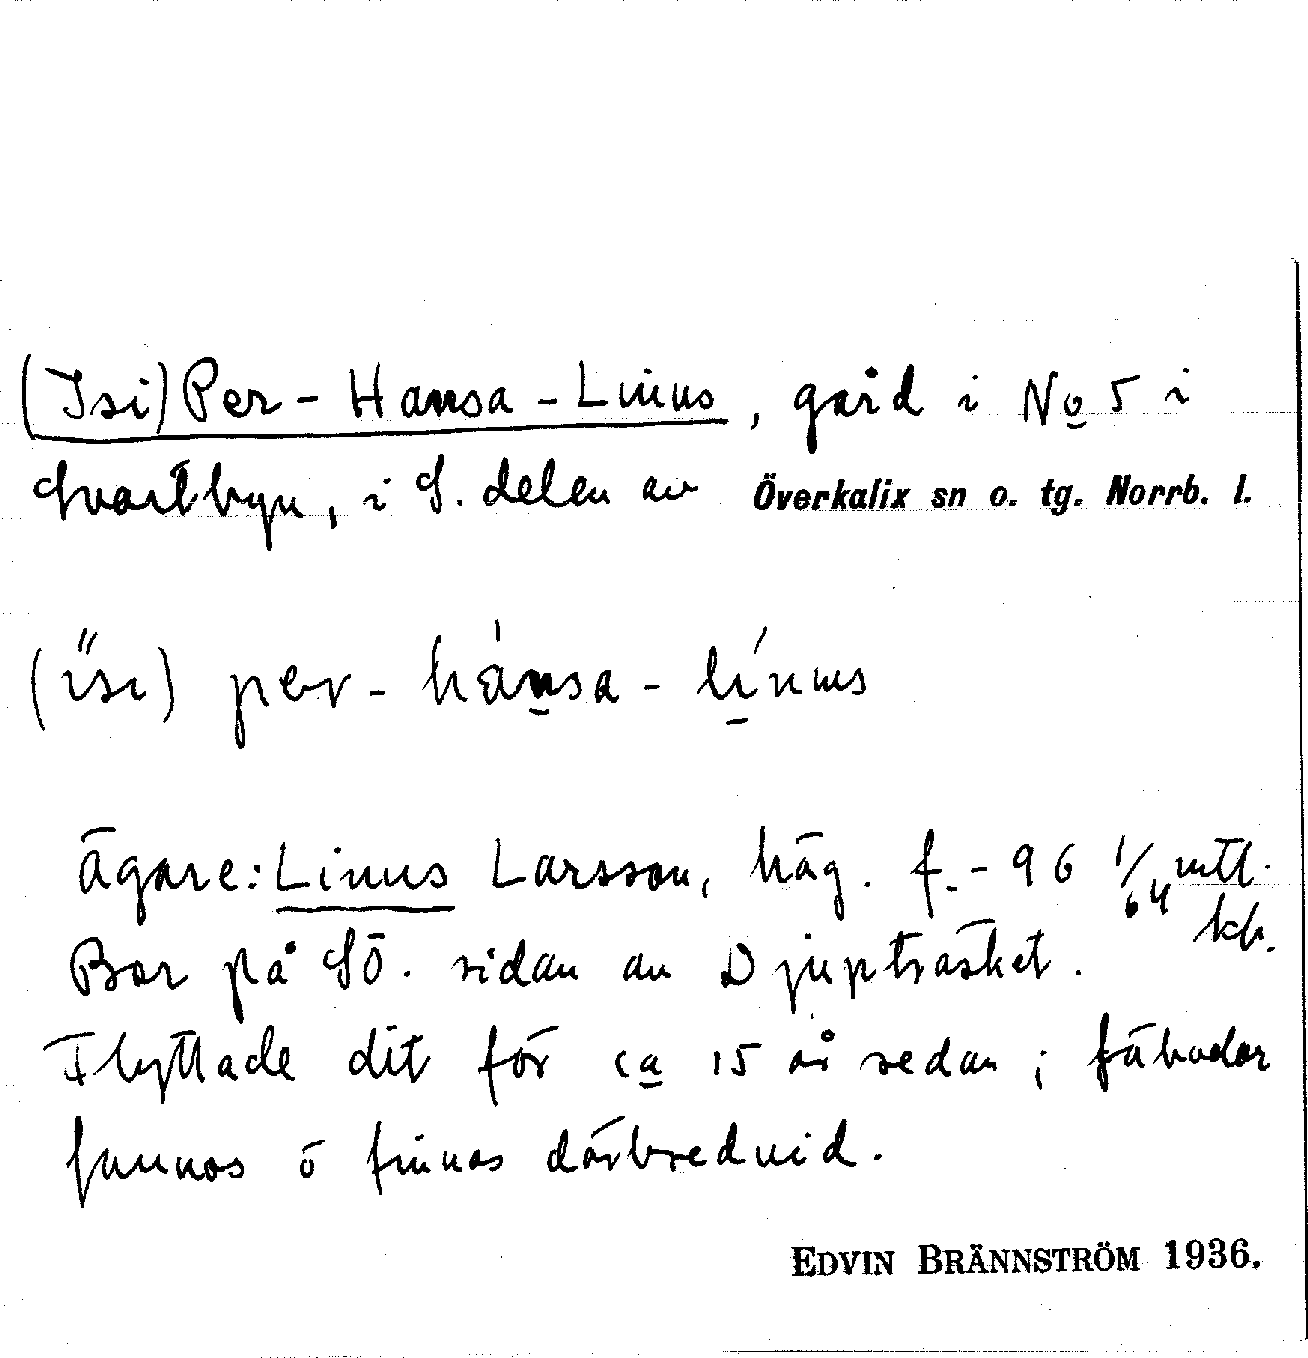 (Isi) Per-Hansa-Linus, gård i No 5 i
Svartbyn, i S. delen av Överkalix sn o. tg. Norrb. l.
(i̋si) per-hánsa-línus
Ägare: Linus Larsson, häg. f. -96 1/64 mtl.
kb.
Bor på SÖ. sidan av Djupträsket.
Flyttade dit för ca 15 år sedan; fäbodar
funnos ö finnas därbredvid.
EDVIN BRÄNNSTRÖM 1936.